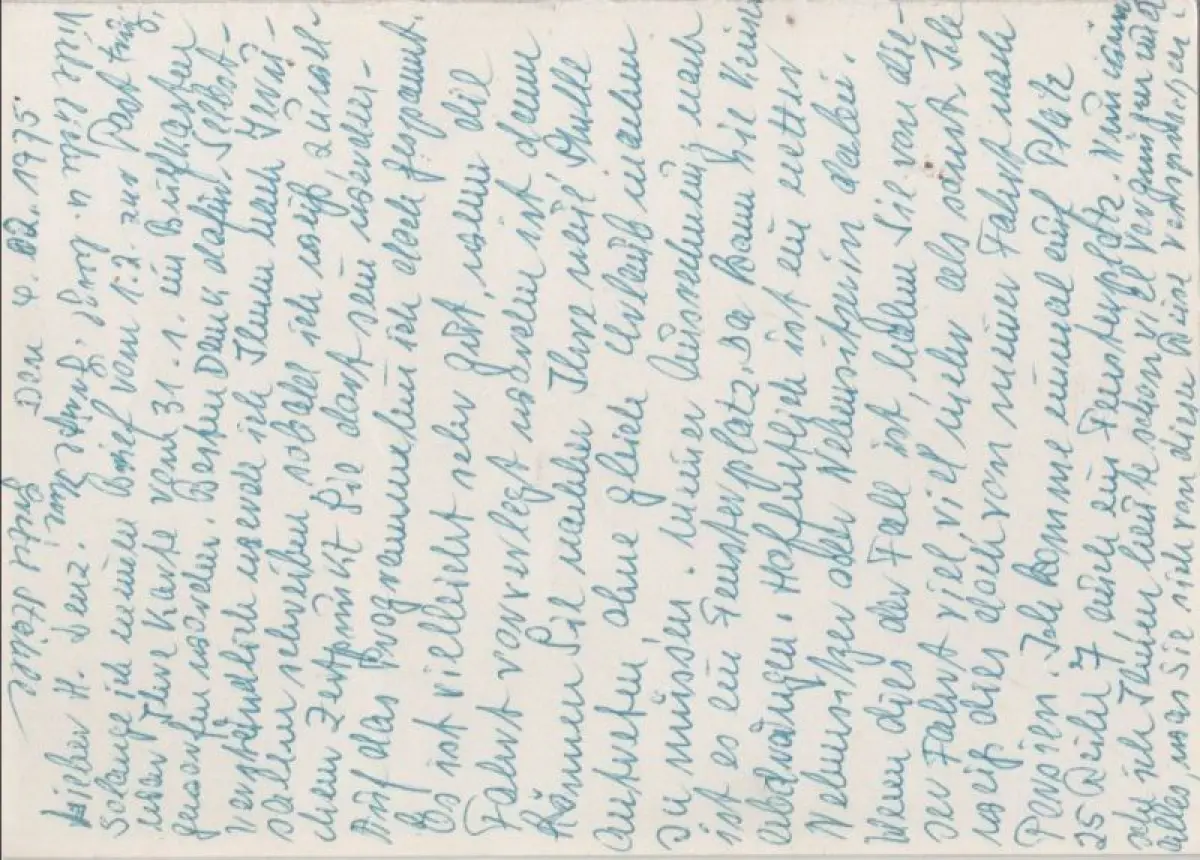 Den 4.02.1975
Lieber H. Lenz.
Solange ich meinen Brief vom 1.2. zur Post trug,
war Ihre Karte vom 31.1. im Briefkasten
geworfen worden. Besten Dank dafür. Selbst-
verständlich werde ich Ihnen
sofern schreiben sobald ich weiß, zu wel-
chem Zeitpunkt Sie dort sein werden.
Auf das Programm bin ich doch gespannt.
Es ist vielleicht sehr gut, wenn die
Fahrt vorverlegt worden ist denn
Können Sie nachher Ihre neue Stelle
antreten, ohne gleich Urlaub machen
zu müssen. Meiner Ausrechnung nach
ist es ein Fensterplatz. Da kann Sie keiner
abdrängen. Hoffentlich ist ein netter
Nebensitzer oder Nebensitzerin dabei.
Wenn dies der Fall ist, haben Sie von die-
ser Fahrt viel, viel mehr als sonst. Ich
weiß dies doch von meiner Fahrt nach
Persien. Ich komme einmal auf Platz
25 Reihe 7 auch ein Fensterplatz. Nun kann
ich Ihnen heute schon viel Vergnügen und
alles, was Sie sich von dieser Reise versprechen